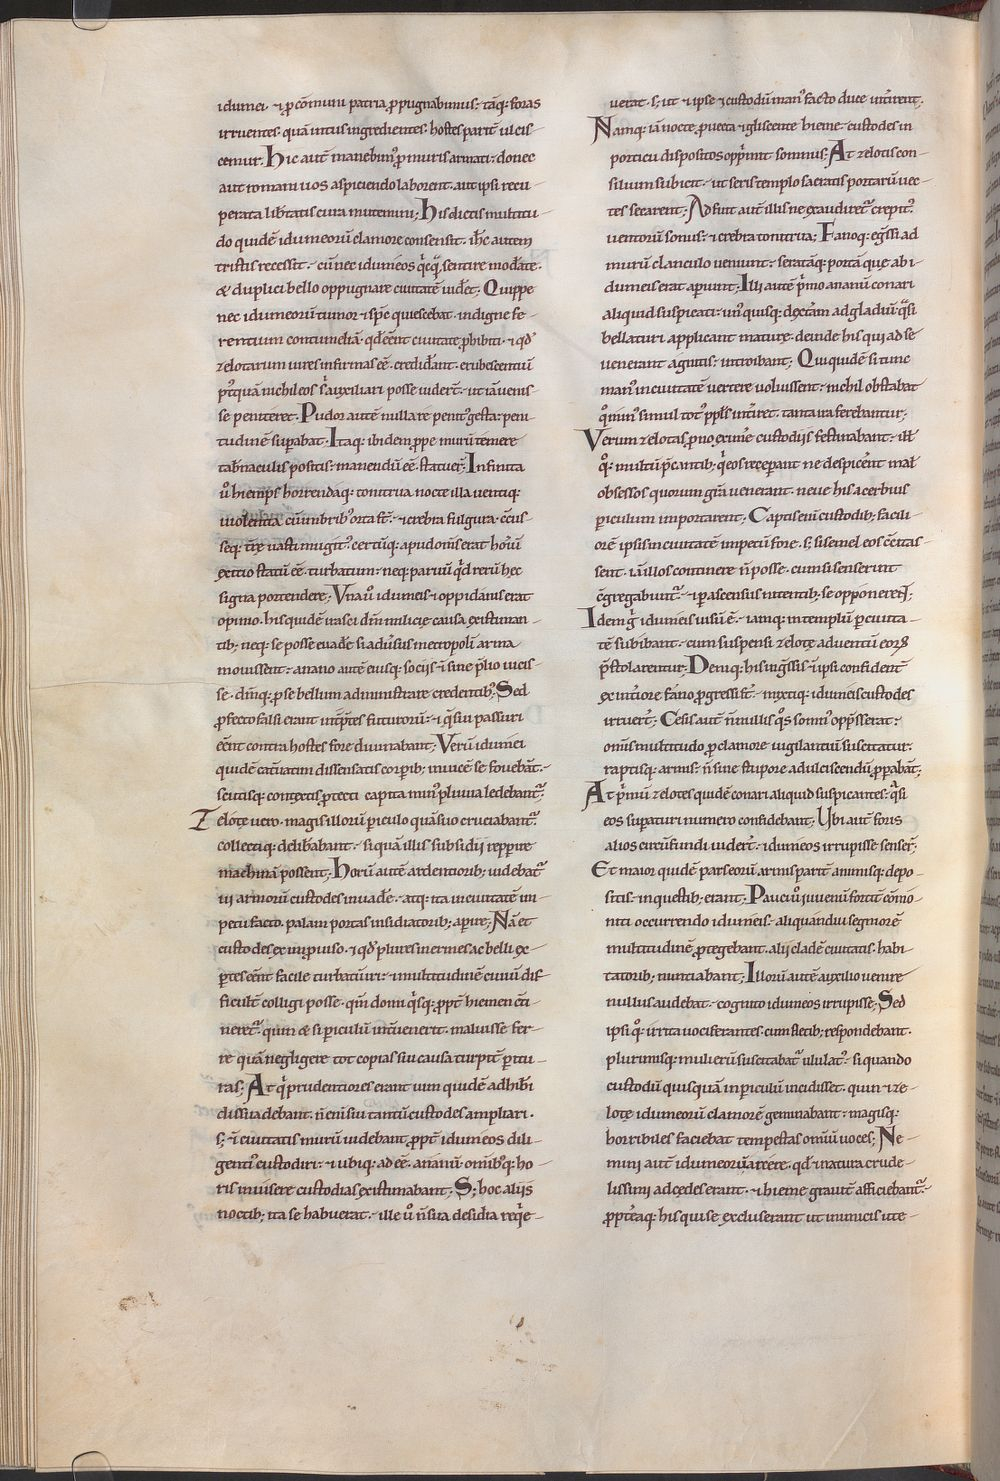 idumei · ⁊ ꝓ cōmuni patria ꝓpugnabimus ; tāq; foras
irruentes · quā intus ingredientes · hostes parit̄ ulcis-
cemur . Hic aut̄ manebim᷒ ꝓ muris armati · donec
aut romani uos aspiciendo laborent · aut ipsi recu-
perata lib̄tatis cura mutemini ; His dictis multitu-
do quidē idumeorū clamore consensit · ih̄c autem
tristis recessit · cū nec idumeos q̇cq̄ sentire mod̄ate ·
& duplici bello oppugnare ciuitatē uid̄et ; Quippe
nec idumeorū tumor ⁊ sp̄e quiescebat · indigne fe-
rentium contumeliā · qd̄ eēnt ciuitate ꝓhibiti · ⁊ qd̄
zelotarum uires infirmas eē · credid̄ant · erubescentiū
pꝰtquā nichil eos s̄ auxiliari posse uider̄t · ut iā uenis-
se peniteret · Pudor autē nulla re penitꝰ gesta · peni-
tudinē sup̄abat · Itaq; ibidem ꝓpe murū temere
tab̄naculis positis · manendū eē statuer̄t ; Infinita
ū hiemps horrendaq; tonitrua nocte illa uentiq;
uiolentia cū imbrib᷒ orta st̄ · ⁊ crebra fulgura · c̄cus
seq; t̄re uasti mugit᷒ · certūq; apud om̄s erat hoīu
exitio statū eē · turbatum · neq; paruū qd̄ rerū hec
signa portendere ; Vna ū idumeis ⁊ oppidanis erat
opinio · his quidē irasci dm̄ milicię causa existiman-
tib; neq; se posse euad̄e si adūsus metropoli arma
mouissent · anano autē eiusq; sociis ⁊ sine p̄lio uicis-
se · dm̄q; ꝓ se bellum administrare credentib᷒ ; Sed
ꝓfecto falsi erant int̄p̄tes futurorū · ⁊ q̄ sui passuri
eēnt contra hostes fore diuinabant ; Verū idumei
quidē cat̄uatim dissensatis corꝑib; inuicē se fouebāt ·
scutisq; contextis ꝓtecti capita min᷒ pluuia ledebant᷒
Zelotę uero · magis illorū ꝑiculo quā suo cruciabant᷒
collectiq; delib̄abant · si quā illis subsidii repperire
machinā possent ; Horū autē ardentiorib; uidebat᷒
ui armorū custodes inuade · atq; ita in ciuitatē im-
petu facto · palam portas insidiatorib; aꝑire ; Nā et
custodes ex improuiso · ⁊ qd̄ plures inermes ac belli ex-
ꝑtes eēnt facile turbaturi · ⁊ multitudinē ciuiū dif-
ficult̄ colligi posse · qm̄ domi q̇sq; ꝓpt̄ hiemen c̄ti-
neret᷒ · quin & si periculū int̄uenerit · maluisse fer-
re quā negligere tot copias sui causa turpit̄ ꝑitu-
ras ; At q̇ prudentiores erant uim quidē adhib̄i
dissuadebant · n̄ enī sui tantū custodes ampliari ·
s; ⁊ ciuitatis murū uidebant ꝓpt̄ idumeos dili-
genti᷒ custodiri · ⁊ ubiq; ad eē · ananū · omib᷒q; ho-
ris inuisere custodias existimabant ; S; hoc aliis
noctib; ita se habuerat · ille ū n̄ sua desidia req̄e-
uerat · s; ut ⁊ ipse ⁊ custodū man᷒ facto duce int̄irent ;
Namq; iā nocte ꝓuecta ⁊ gliscente hieme · custodes in
porticu dispositos opp̄mit somnus ; At zelotis con-
silium subicit · ut seris templo sacratis portarū uec-
tes secarent ; Adfuit aut̄ illis ne exaudiret᷒ crepit᷒
uentorū sonus · ⁊ crebra tonitrua ; Fanoq; eg̅ssi ad
murū clanculo ueniunt · seratāq; portā que ab i-
dumeis erat aꝑiunt ; Illi autē p̄mo ananū conari
aliquid suspicati · un᷒quisq; dext̄am ad gladiū q̄si
bellaturi applicant · mature · deinde his qui ad se
uenerant agnitis · introibant ; Qui quidē si tunc
man᷒ in ciuitatē uertere uoluissent · nichil obstabat
qͦ min᷒ simul tot᷒ ppls int̄iret · tanta ira ferebantur ;
Verum zelotas ꝓno exime custodiis festinabant · ill̄
qͦq; multū p̄cantib; q̇ eos receperant ne despicēnt mal̄
obsessos quorum gr̄a uenerant · neue his acerbius
ꝑiculum importarent ; Captis enī custodib; facili-
orē ipsis in ciuitatē impetū fore · s; si semel eos c̄citas-
sent · iā illos continere n̄ posse · cum si senserint
c̄gregabunt᷒ · ⁊ ꝑ ascensus intentib; se opponerent ;
Idem q̇ idumeis uisū ē · iamq; in templū ꝑ ciuita-
tē subibant · cum suspensi zelotę aduentū eoꝝ
p̄stolarentur ; Deniq; his ing̅ssis · ⁊ ipsi confident̄
ex int̄iore fano ꝓgressi st̄ · mixtiq; idumeis custodes
irruer̄t ; Cesis aut̄ n̄nullis q̊s somn᷒ opp̄sserat ·
om̄is multitudo ꝓ clamore uigilantiū suscitatur ·
raptisq; armis · n̄ sine stupore ad ulciscendū ꝓꝑabāt ;
At p̄mū zelotes quidē conari aliquid suspicantes · q̄si
eos suꝑaturi numero confidebant ; Ubi aut̄ foris
alios circūfundi uider̄t · idumeos irrupisse senser̄t ;
Et maior quidē pars eorū armis parit̄ animisq; depo-
sitis · in questib; erant ; Pauci ū iuuenū fortit̄ cōmo-
niti occurrendo idumeis · aliquandiu segniorē
multitudinē ꝓtegebant · alii cladē ciuitatis · habi-
tatorib; nuntiabant ; Illorū autē auxilio uenire
nullus audebat · cognito idumeos irrupisse ; Sed
ipsi qͦ; irrita uociferantes · cum fletib; respondebant ·
plurimusq; mulierū suscitabat᷒ ululat᷒ · si quando
custodū quisquā in periculū incidisset · quin ⁊ ze-
lotę idumeorū clamorē geminabant · magisq;
horribiles faciebat tempestas omniū uoces ; Ne-
mini aut̄ idumeorū parcere · qd̄ ⁊ natura crude-
lissimi ad cędes erant · ⁊ hieme grauit̄ afficiebant᷒ ·
ꝓpt̄eaq; his qui se excluserant ut inimicis ute-